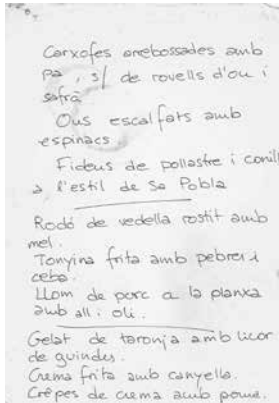 Carxofes arrebossades amb
pa, s/ de rovells d'ou i
safrà
Ous escalfats amb
espinacs
Fideus de pollastre i conill
a l'estil de Sa Pobla
Rodó de vedella rostit amb
mel.
Tonyina frita amb pebre i
ceba.
Llom de porc a la planxa
amb all i oli.
Gelat de taronja amb licor
de guindes.
Crema frita amb canyella.
Crêpes de crema amb poma.